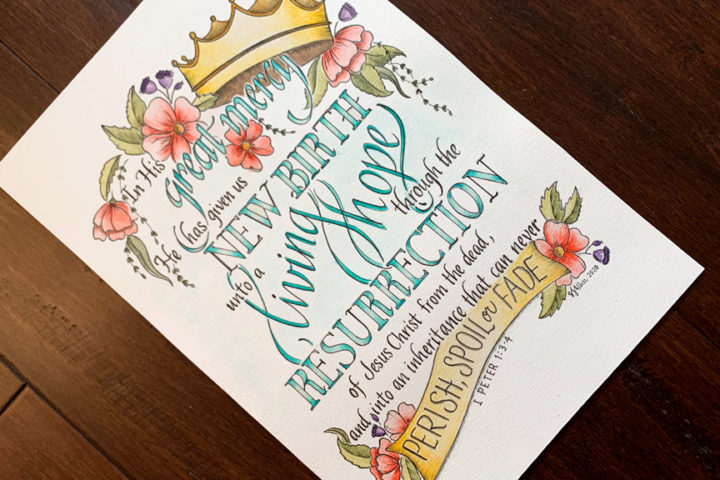 In His
great mercy
He has given us
NEW BIRTH
unto a
living Hope
through the
RESURRECTION
of Jesus Christ from the dead,
and into an inheritance that can never
PERISH, SPOIL or FADE
1 PETER 1:3-4
2020